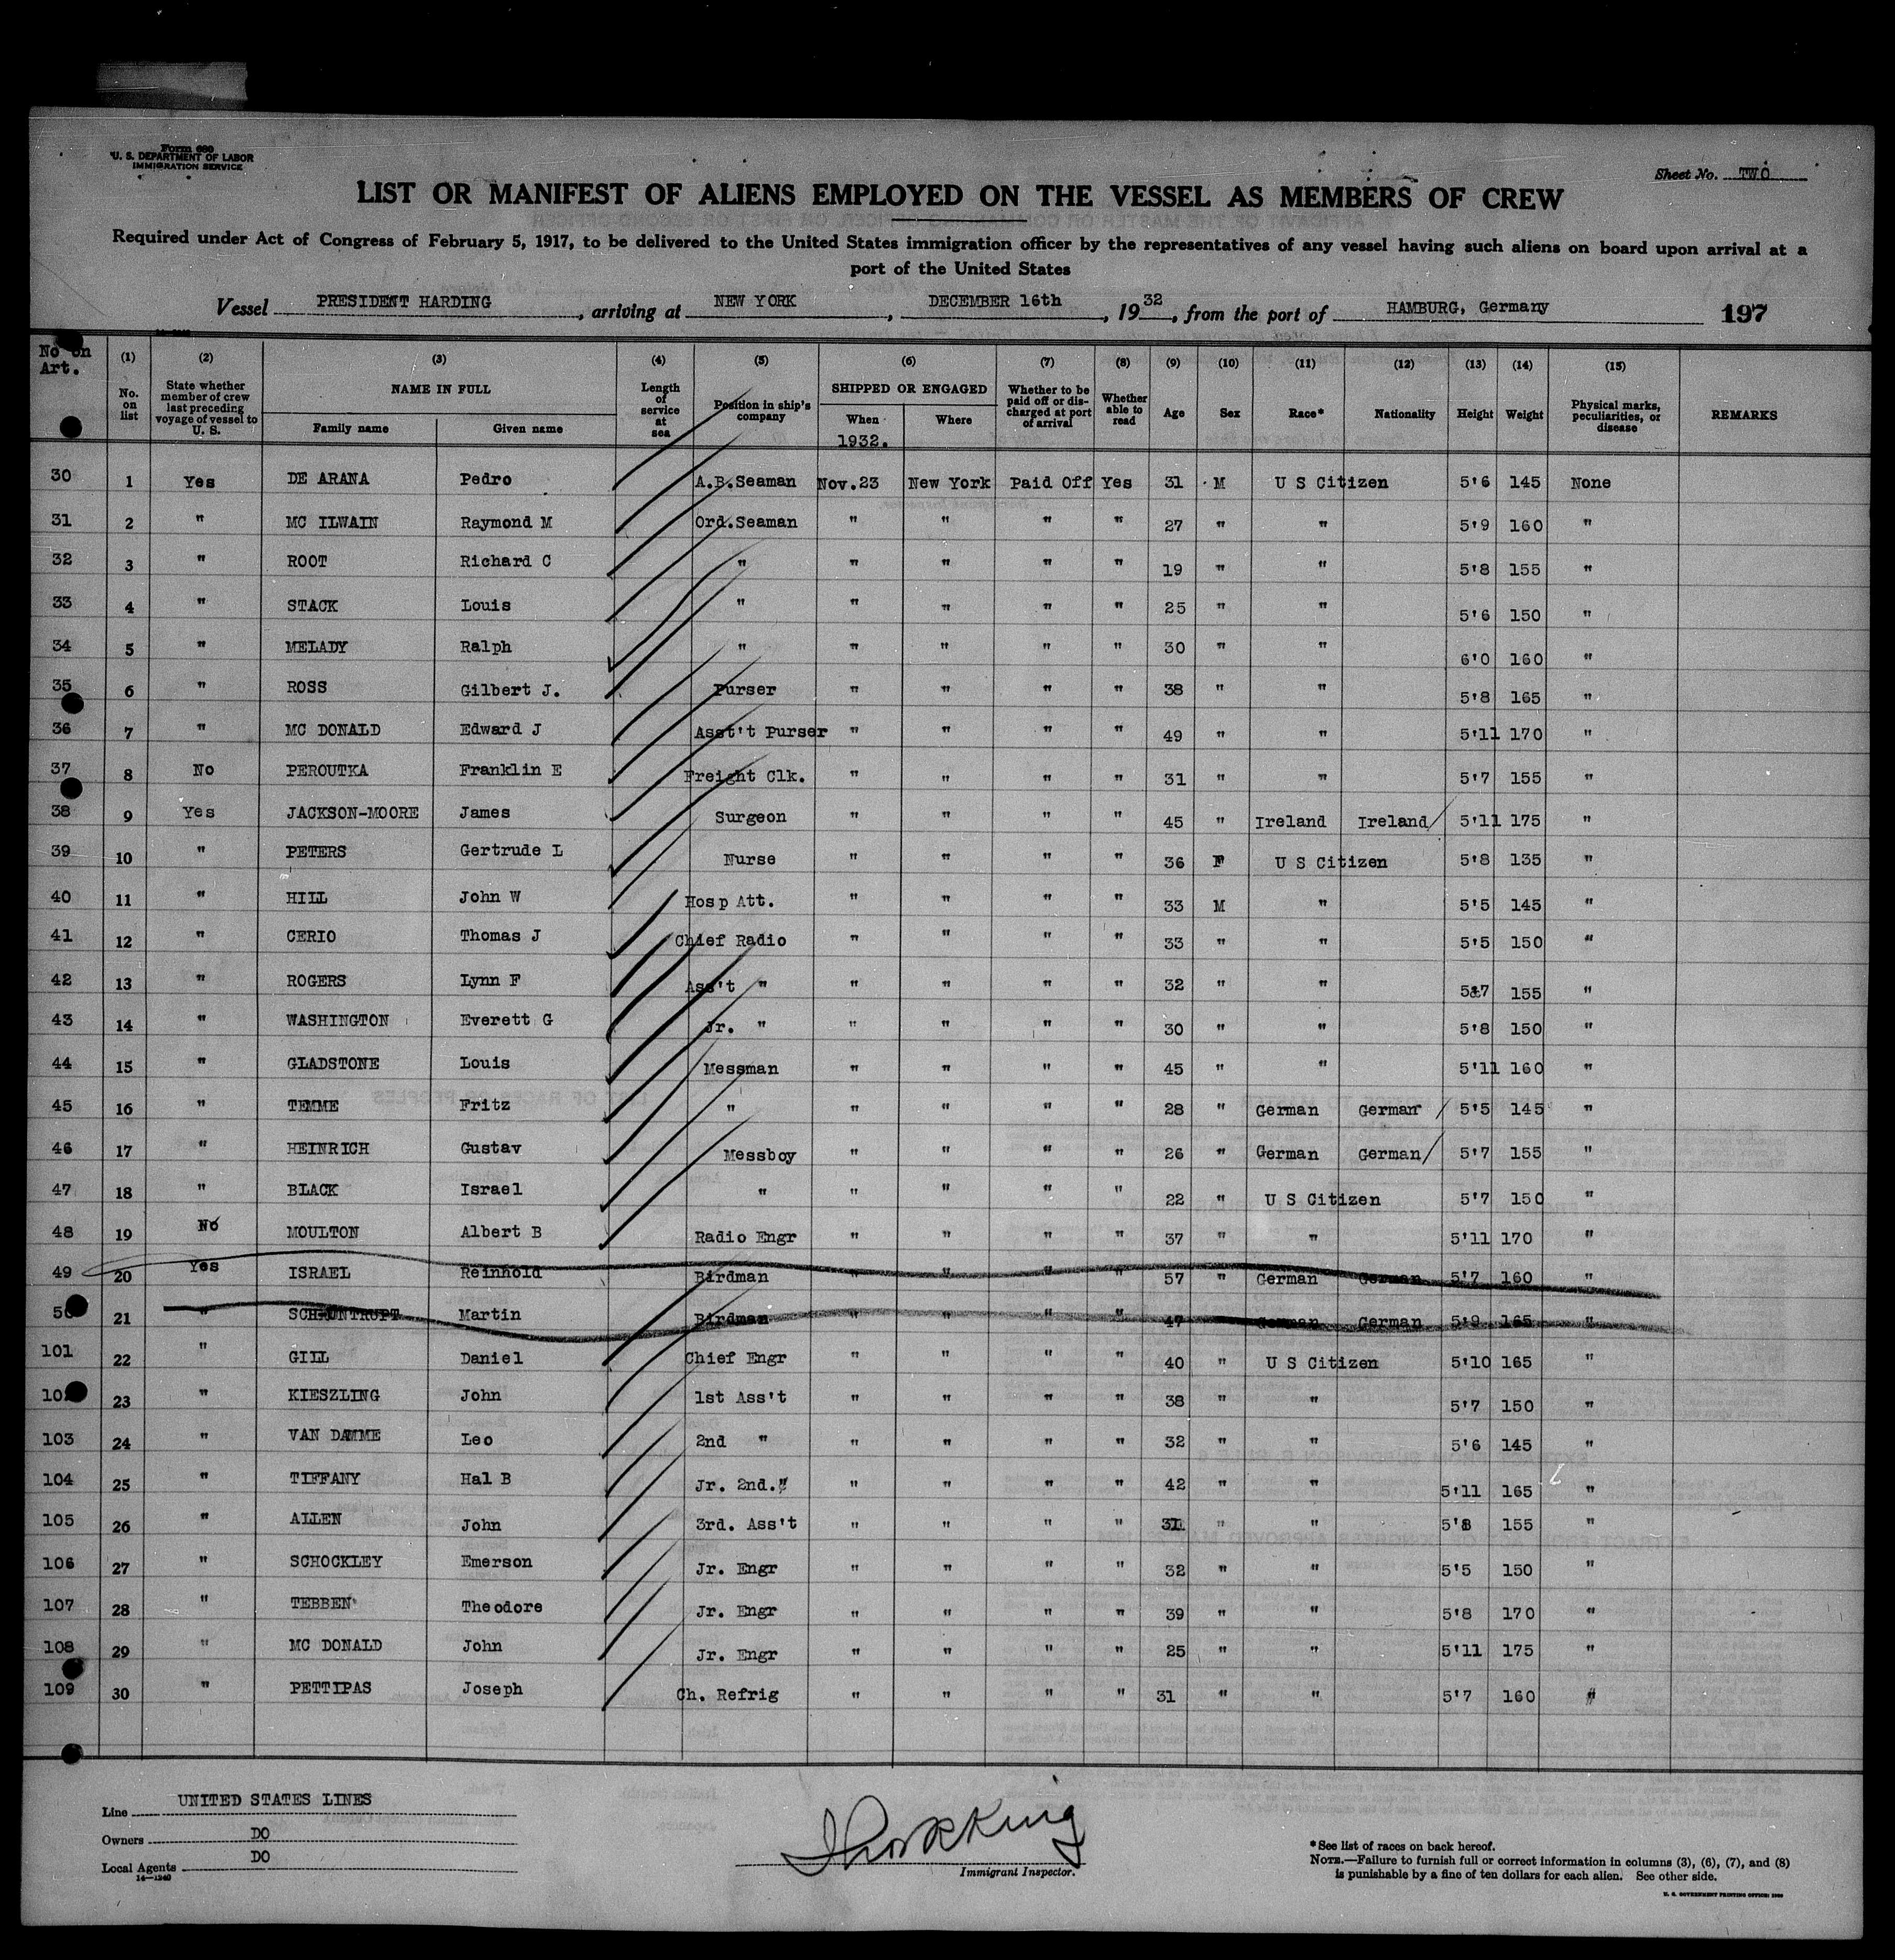 Form 680
U. S. DEPARTMENT OF LABOR
IMMIGRATION SERVICE
Sheet No. TWO
LIST OR MANIFEST OF ALIENS EMPLOYED ON THE VESSEL AS MEMBERS OF CREW
Required under Act of Congress of February 5, 1917, to be delivered to the United States immigration officer by the representatives of any vessel having such aliens on board upon arrival at a
port of the United States
Vessel PRESIDENT HARDING, arriving at NEW YORK, DECEMBER 16th, 1932, from the port of HAMBURG, Germany 197
No on Art. (1) No. on list (2) State whether member of crew last preceding voyage of vessel to U. S. (3) NAME IN FULL Family name Given name (4) Length of service at sea (5) Position in ship's company (6) SHIPPED OR ENGAGED When Where (7) Whether to be paid off or discharged at port of arrival (8) Whether able to read (9) Age (10) Sex (11) Race* (12) Nationality (13) Height (14) Weight (15) Physical marks, peculiarities, or disease REMARKS
1932.
30 1 Yes DE ARANA Pedro A.B.Seaman Nov.23 New York Paid Off Yes 31 M U S Citizen 5'6 145 None
31 2 " MC ILWAIN Raymond M Ord.Seaman " " " " 27 " " 5'9 160 "
32 3 " ROOT Richard C " " " " " 19 " " 5'8 155 "
33 4 " STACK Louis " " " " " 25 " " 5'6 150 "
34 5 " MELADY Ralph " " " " " 30 " " 6'0 160 "
35 6 " ROSS Gilbert J. Purser " " " " 38 " " 5'8 165 "
36 7 " MC DONALD Edward J Asst't Purser " " " " 49 " " 5'11 170 "
37 8 No PEROUTKA Franklin E Freight Clk. " " " " 31 " " 5'7 155 "
38 9 Yes JACKSON-MOORE James Surgeon " " " " 45 " Ireland Ireland 5'11 175 "
39 10 " PETERS Gertrude L Nurse " " " " 36 F U S Citizen 5'8 135 "
40 11 " HILL John W Hosp Att. " " " " 33 M " 5'5 145 "
41 12 " CERIO Thomas J Chief Radio " " " " 33 " " 5'5 150 "
42 13 " ROGERS Lynn F Ass't " " " " " 32 " " 5'7 155 "
43 14 " WASHINGTON Everett G Jr. " " " " " 30 " " 5'8 150 "
44 15 " GLADSTONE Louis Messman " " " " 45 " " 5'11 160 "
45 16 " TEMME Fritz " " " " " 28 " German German 5'5 145 "
46 17 " HEINRICH Gustav Messboy " " " " 26 " German German 5'7 155 "
47 18 " BLACK Israel " " " " " 22 " U S Citizen 5'7 150 "
48 19 No MOULTON Albert B Radio Engr " " " " 37 " " 5'11 170 "
49 20 Yes ISRAEL Reinhold Birdman " " " " 57 " German German 5'7 160 "
50 21 " Martin Birdman " " " " 47 " German German 5'9 165 "
101 22 " GILL Daniel Chief Engr " " " " 40 " U S Citizen 5'10 165 "
102 23 " KIESZLING John 1st Ass't " " " " 38 " " 5'7 150 "
103 24 " VAN DAMME Leo 2nd " " " " " 32 " " 5'6 145 "
104 25 " TIFFANY Hal B Jr. 2nd." " " " " 42 " " 5'11 165 "
105 26 " ALLEN John 3rd. Ass't " " " " 31 " " 5'8 155 "
106 27 " SCHOCKLEY Emerson Jr. Engr " " " " 32 " " 5'5 150 "
107 28 " TEBBEN Theodore Jr. Engr " " " " 39 " " 5'8 170 "
108 29 " MC DONALD John Jr. Engr " " " " 25 " " 5'11 175 "
109 30 " PETTIPAS Joseph Ch. Refrig " " " " 31 " " 5'7 160 "
Line UNITED STATES LINES
Owners DO
Local Agents DO
14—1240
Immigrant Inspector.
*See list of races on back hereof.
NOTE.—Failure to furnish full or correct information in columns (3), (6), (7), and (8)
is punishable by a fine of ten dollars for each alien. See other side.